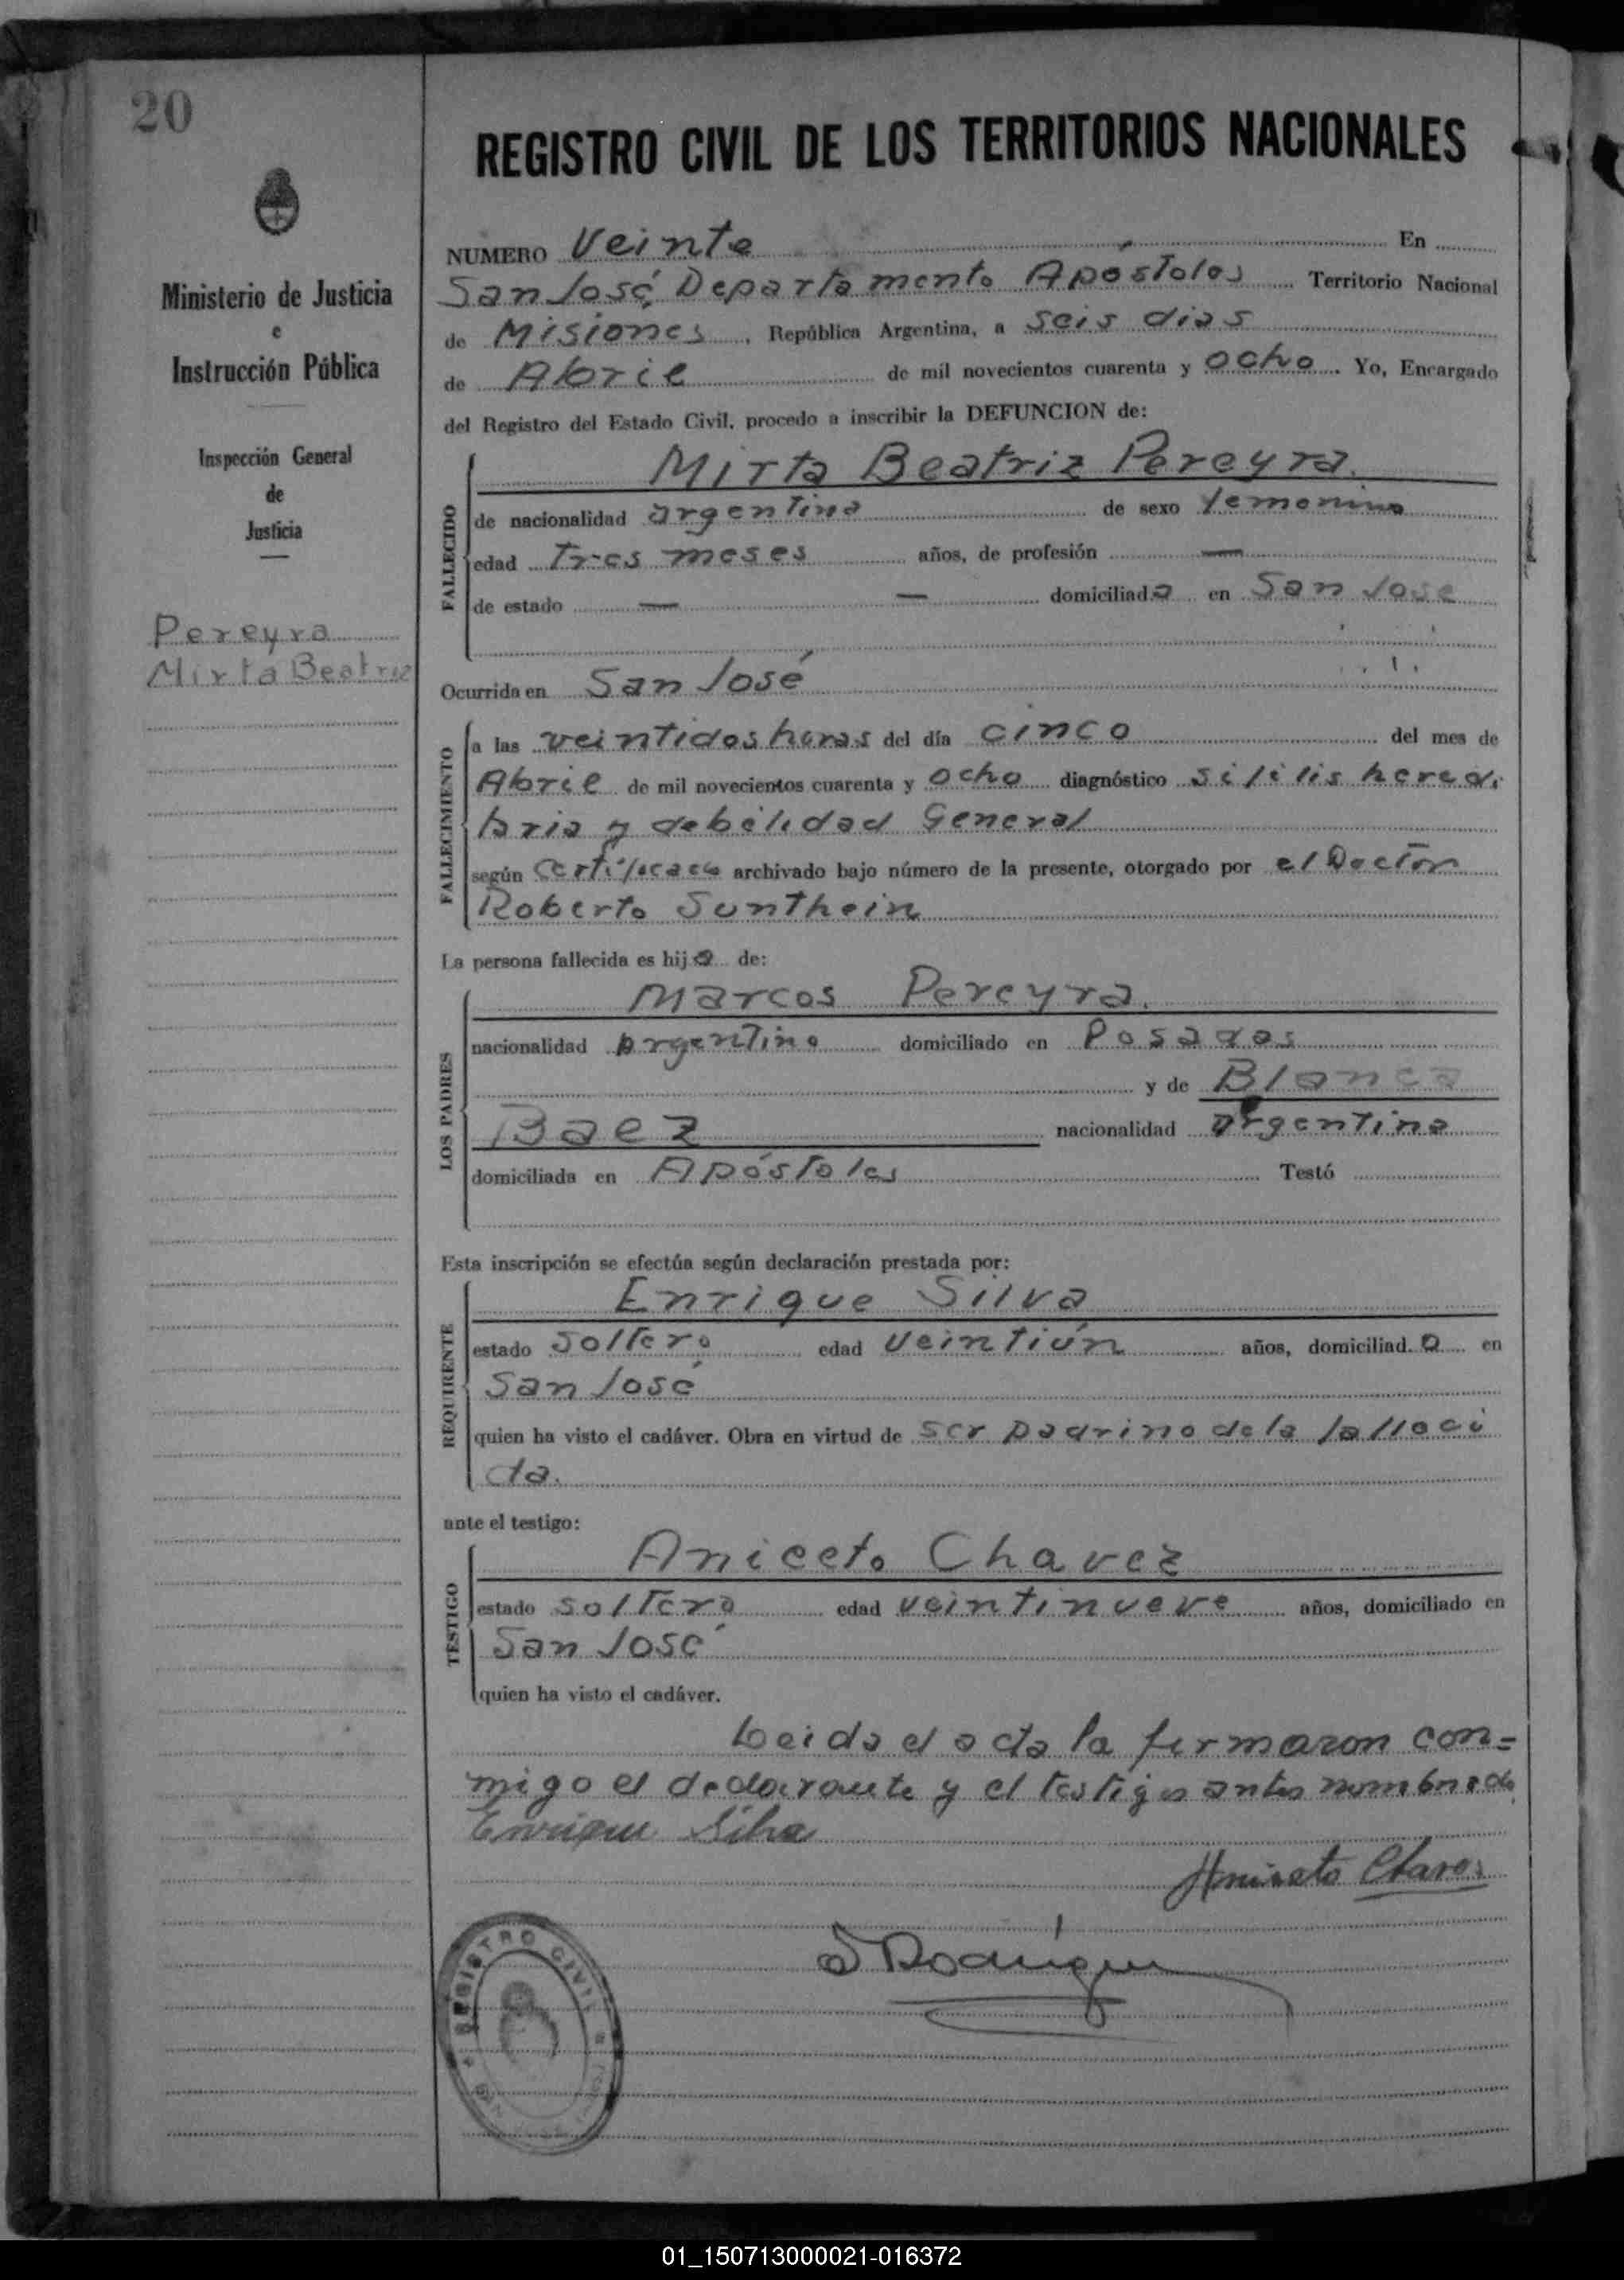 20
REGISTRO CIVIL DE LOS TERRITORIOS NACIONALES
Ministerio de Justicia
e
Instrucción Pública
Inspección General
de
Justicia
Pereyra
Mirta Beatriz
NUMERO Veinte En
San José, Departamento Apóstoles Territorio Nacional
de Misiones, República Argentina, a seis dias
de Abril de mil novecientos cuarenta y ocho. Yo, Encargado
del Registro del Estado Civil, procedo a inscribir la DEFUNCION de:
FALLECIDO
Mirta Beatriz Pereyra.
de nacionalidad argentina de sexo femenino
edad Tres meses años, de profesión —
de estado — — domiciliada en San Jose
Ocurrida en San José
FALLECIMIENTO
a las veintidos horas del día cinco del mes de
Abril de mil novecientos cuarenta y ocho diagnóstico sifilis heredi
taria y debilidad General
según certificado archivado bajo número de la presente, otorgado por el Doctor
Roberto Sunthein
La persona fallecida es hija de:
LOS PADRES
Marcos Pereyra.
nacionalidad argentino domiciliado en Posadas
y de Blanca
Baez nacionalidad argentina
domiciliada en Apóstoles Testó
Esta inscripción se efectúa según declaración prestada por:
REQUIRENTE
Enrique Silva
estado soltero edad veintiún años, domiciliado en
San José
quien ha visto el cadáver. Obra en virtud de ser padrino de la falleci
da.
ante el testigo:
TESTIGO
Aniceto Chavez
estado soltero edad veintinueve años, domiciliado en
San José
quien ha visto el cadáver.
Leida el acta la firmaron con=
migo el declarante y el testigo antes nombrado
Enrique Silva
Aniceto Chavez
REGISTRO CIVIL
01_150713000021-016372